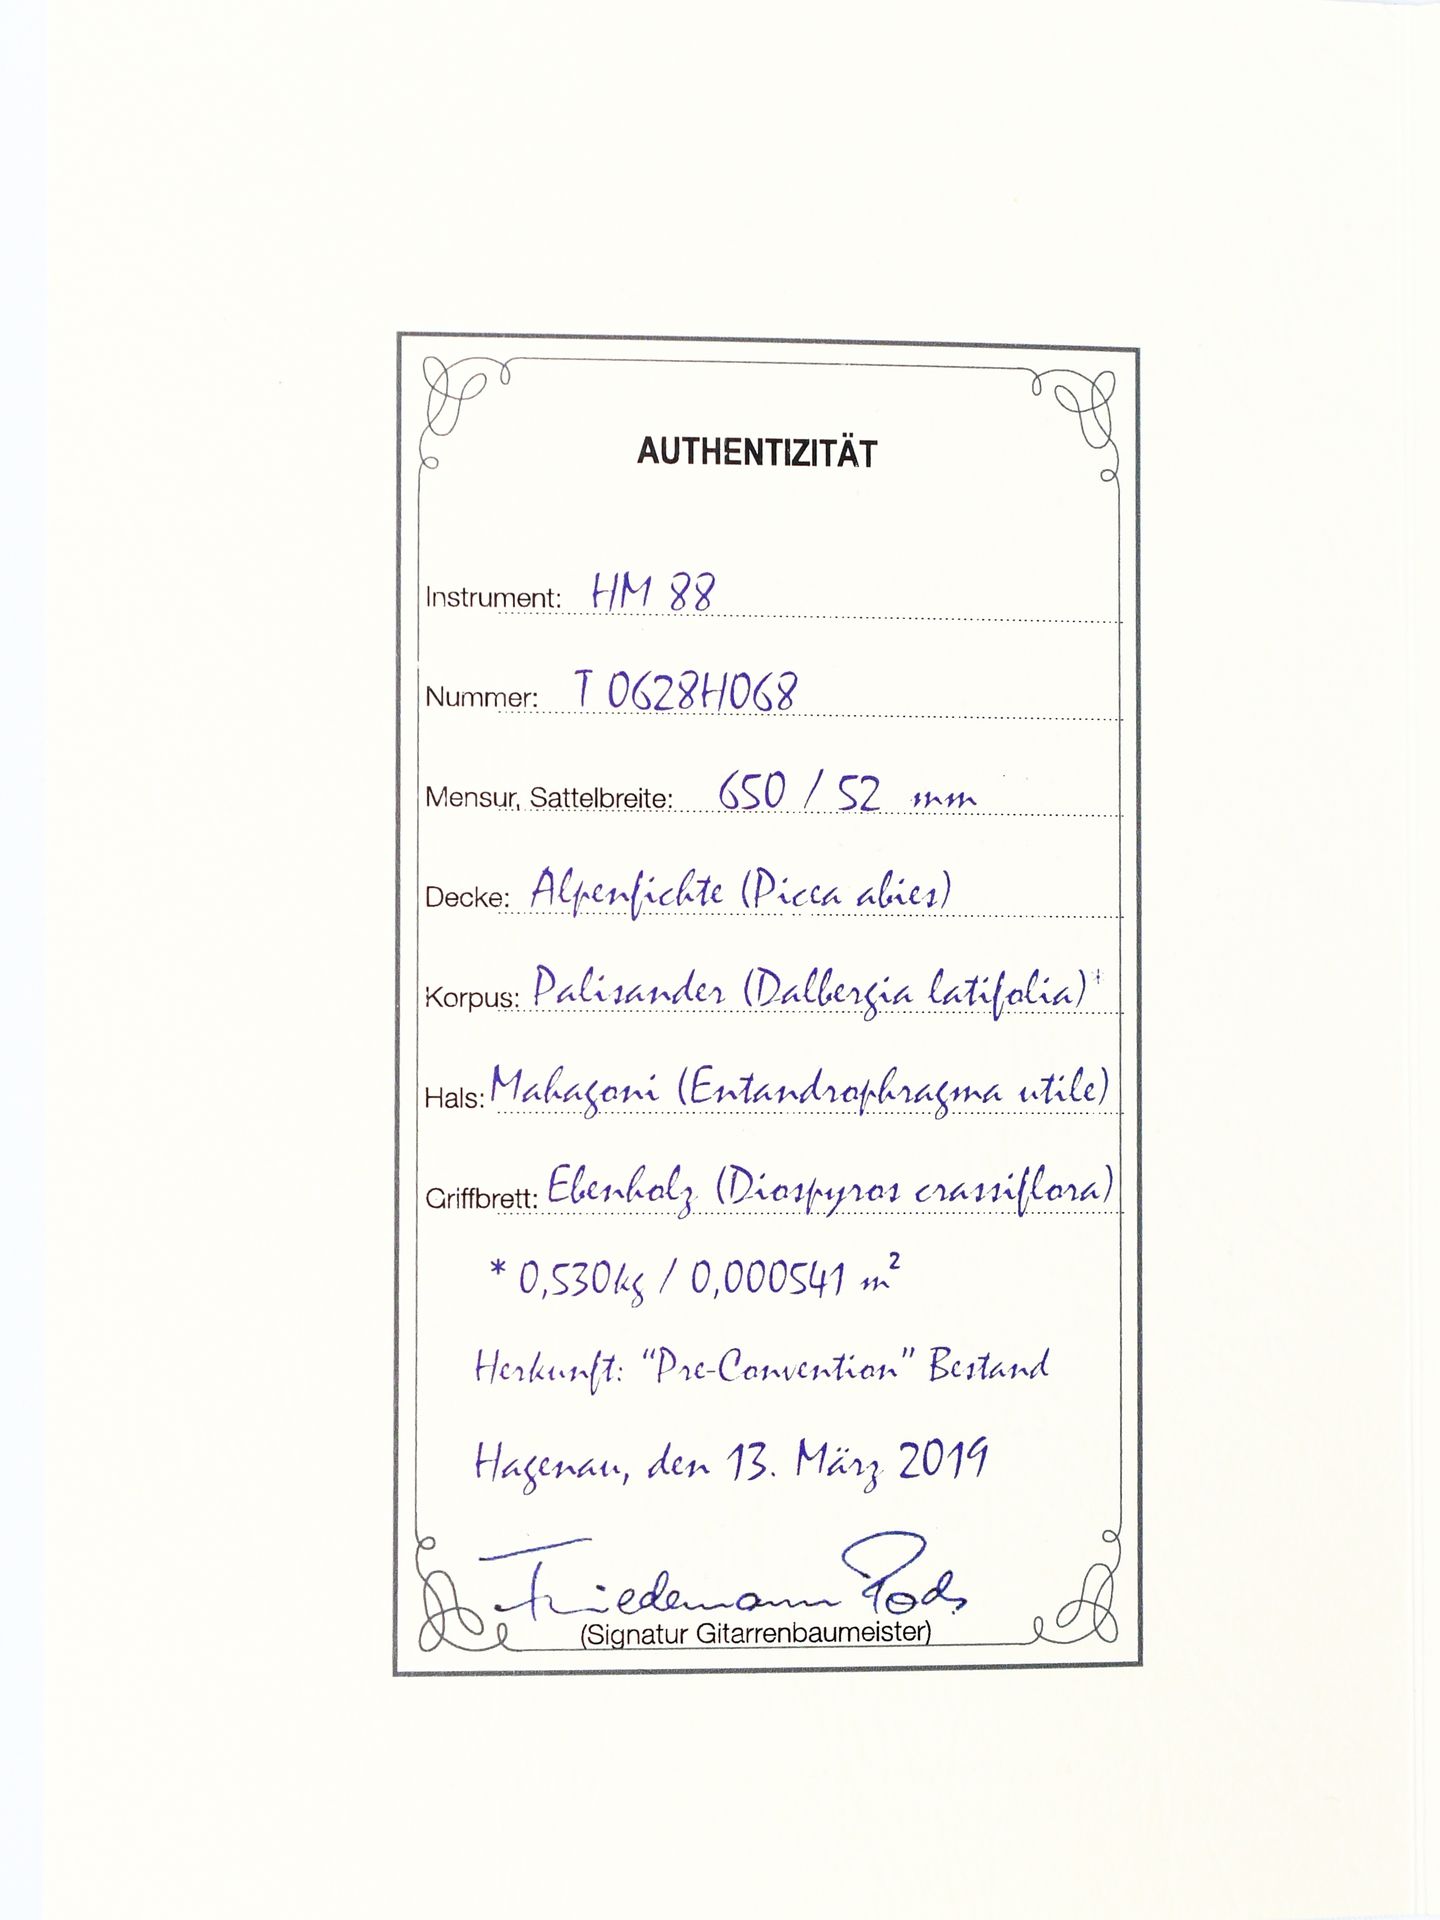 AUTHENTIZITÄT
Instrument: HM 88
Nummer: T 0628H068
Mensur, Sattelbreite: 650 / 52 mm
Decke: Alpenfichte (Picea abies)
Korpus: Palisander (Dalbergia latifolia)*
Hals: Mahagoni (Entandrophragma utile)
Griffbrett: Ebenholz (Diospyros crassiflora)
* 0,530kg / 0,000541 m²
Herkunft: "Pre-Convention" Bestand
Hagenau, den 13. März 2019
Friedemann
(Signatur Gitarrenbaumeister)